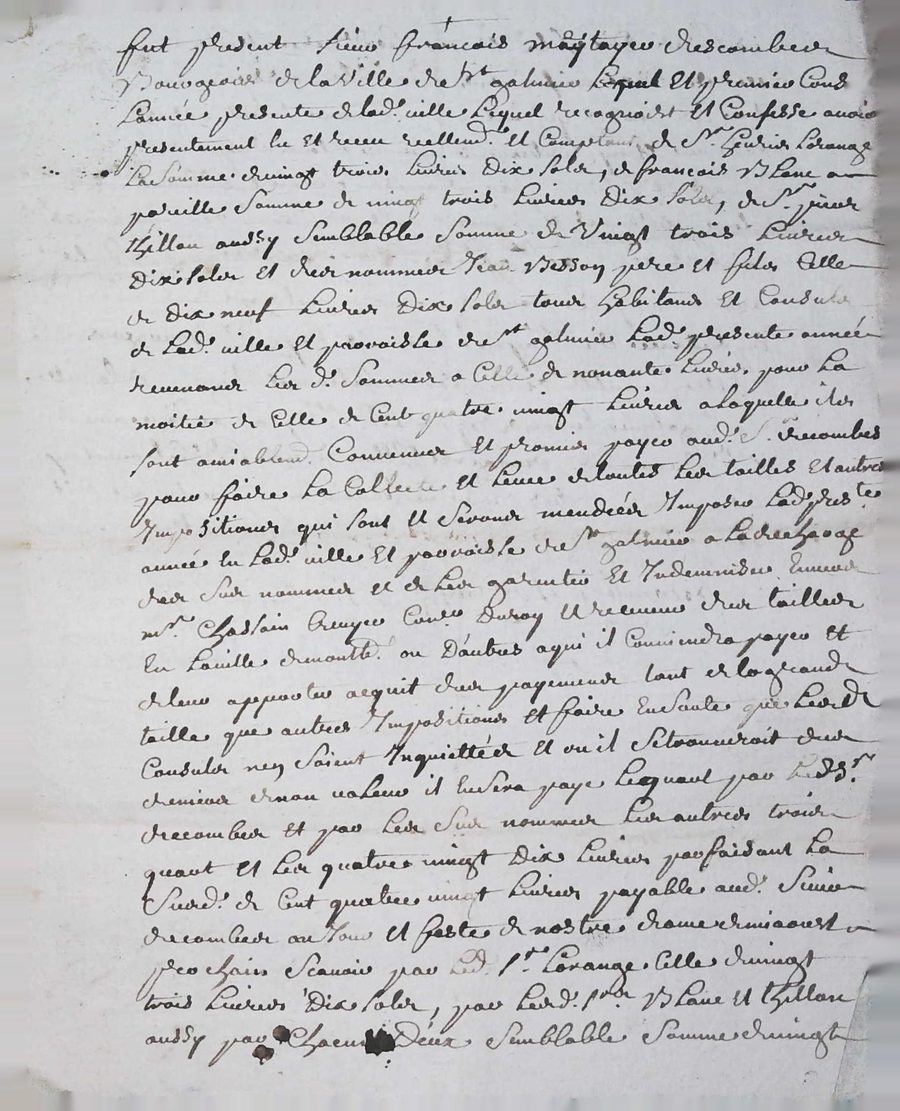 fut present sieur françois maytayer descombes
Bourgeois de la ville de St galmier Lequel Et premier Cons
Lannée presente de lad. ville Lequel recognoist Et Confesse avoir
presentement eu Et receu reellemt. Et Comptant, de Sr. henries Lorange
La somme de vingt trois Livres Dix solz, de françois Blanc
pareille somme de vingt trois Livres Dix solz, de Sr. pierre
thillon aussy semblable somme de Vingt trois Livres
Dix solz Et des nommes Jean Besson pere Et filz Celle
de Dix neuf Livres Dix solz tous habitans Et Consulz
de Lad. ville Et parroisse de St galmier Lad. presente année
revenans Les d. sommes a Celle de nonante Livres, pour La
moitié de Celle de Cent quatre vingt Livres a laquelle ilz
sont amiablemt. Convenus Et promis payer aud. Sr. descombes
pour faire La Collecte Et Levee de toutes Les tailles Et autres
Impositions qui sont Et Seront mendées Imposer Lad. preste.
année En Lad. ville Et parroisse de St galmier a La descharge
des sus nommes Et de Les garentir Et Indemniser Envers
mr. Chassain Conr. Duroy Et receveur des tailles
En La ville de montb. ou D'autres a qui il Conviendra payer Et
de leur apporter acquit des payemens tant de la grande
taille que autres Impositions Et faire En sorte que Lesd.
Consulz ney soient Inquiettés Et ou il se trouveroit des
deniers de non valeur il En sera paye Le quart par Led. Sr.
descombes Et par Les sus nommes Les autres trois
quart Et Les quatre vingt Dix Livres parfaisant La
susd. de Cent quatre vingt Livres payable aud. Sieur
descombes au Jour Et feste de nostre dame de miaoust
prochain scavoir par Led. Sr. Lorange Celle de vingt
trois Livres Dix solz, par Lesd. srs Blanc Et thillon
aussy par Chacun Deux semblable somme de vingt